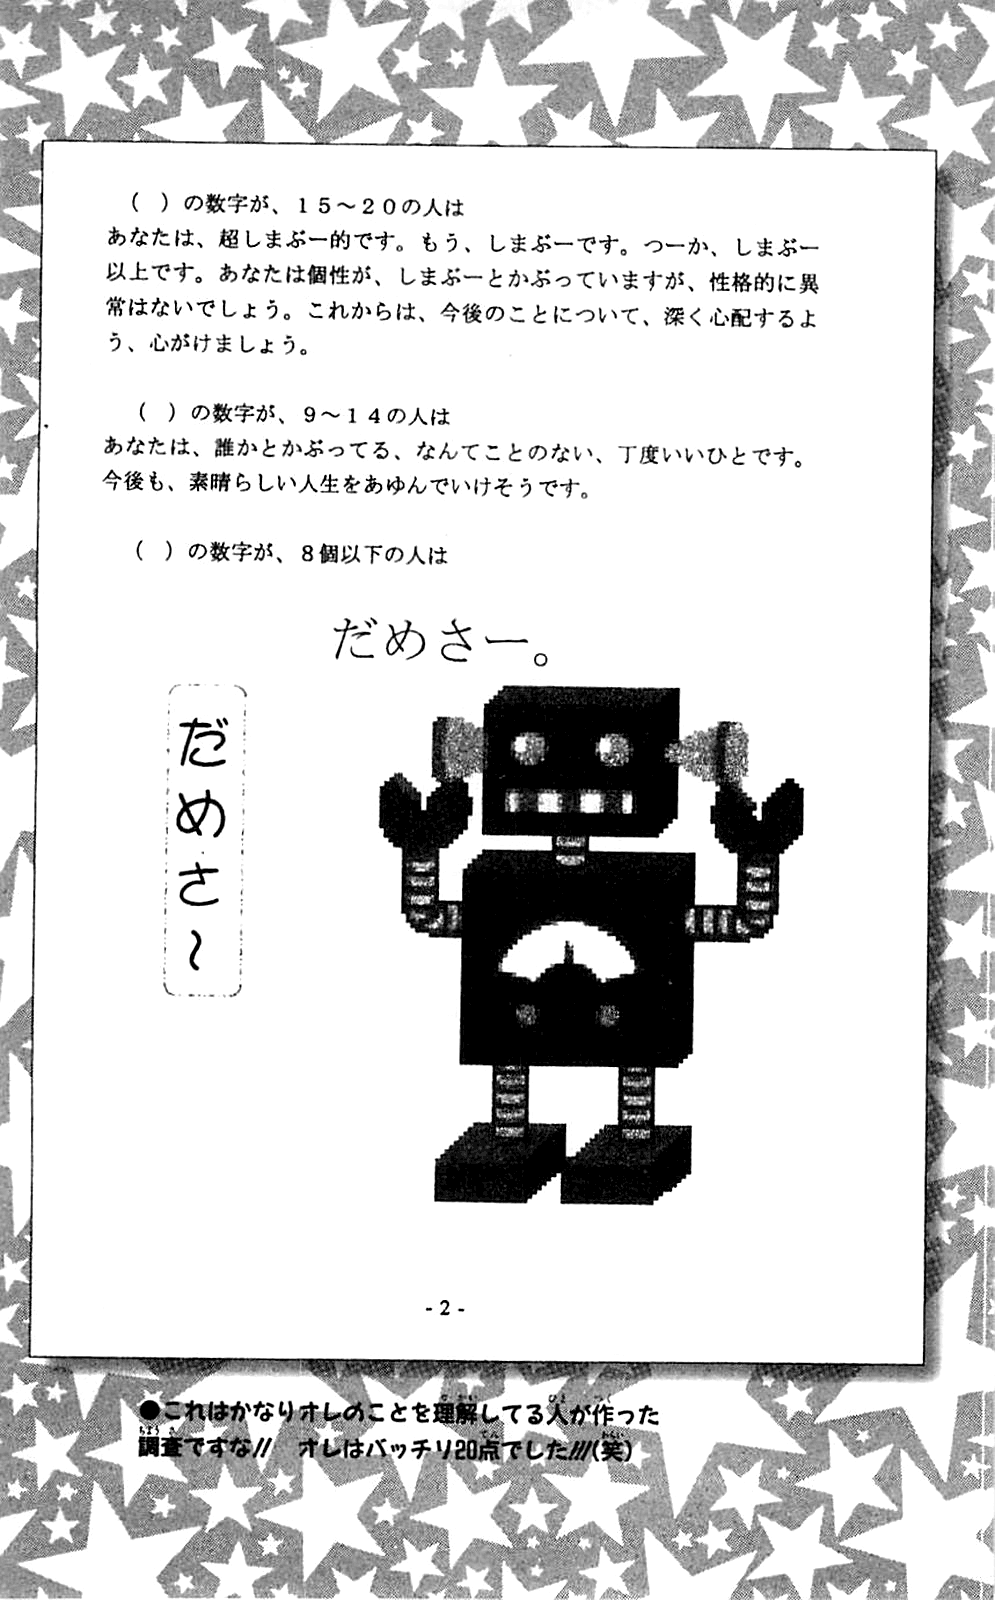 （　）の数字が、１５～２０の人は
あなたは、超しまぶー的です。もう、しまぶーです。つーか、しまぶー
以上です。あなたは個性が、しまぶーとかぶっていますが、性格的に異
常はないでしょう。これからは、今後のことについて、深く心配するよ
う、心がけましょう。
（　）の数字が、９～１４の人は
あなたは、誰かとかぶってる、なんてことのない、丁度いいひとです。
今後も、素晴らしい人生をあゆんでいけそうです。
（　）の数字が、８個以下の人は
だめさー。
だめさ～
- 2 -
●これはかなりオレのことを理解してる人が作った
調査ですな!! オレはバッチリ20点でした!!!(笑)